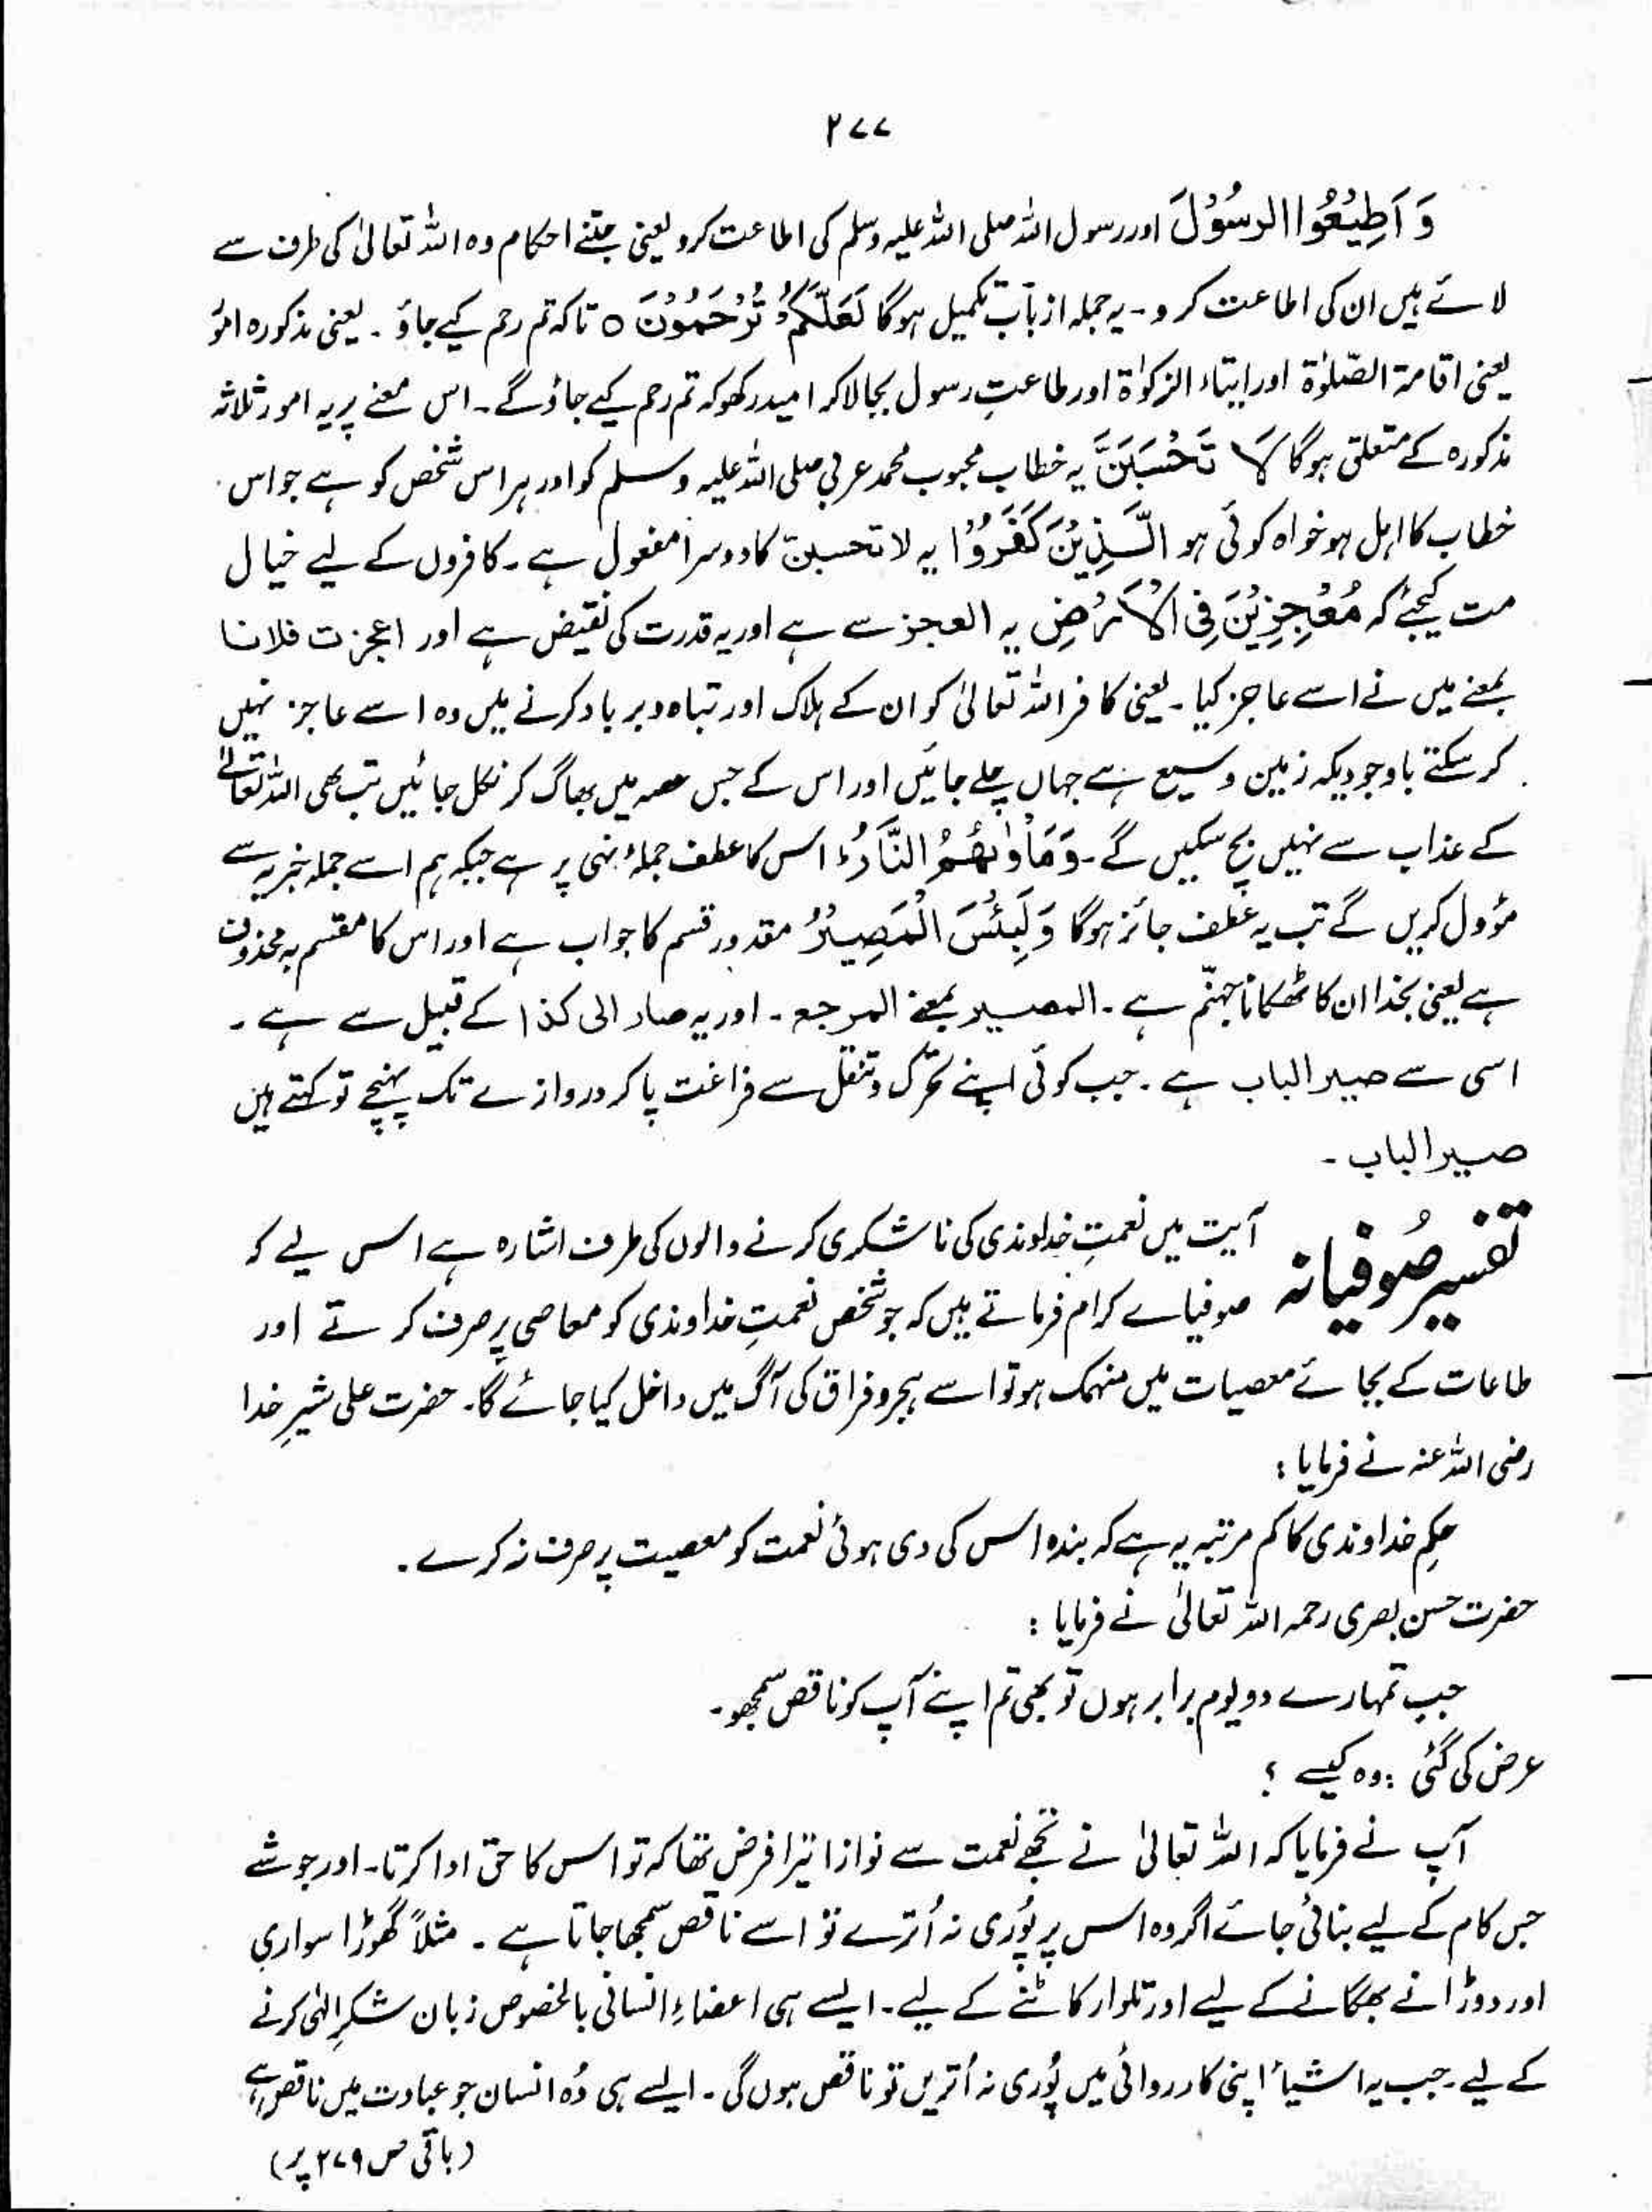 ۲۷۷
وَ اَطِیْعُوا الرسُوْلَ اور رسول اللہ صلی اللہ علیہ وسلم کی اطاعت کرو یعنی جتنے احکام وہ اللہ تعالیٰ کی طرف سے
لائے ہیں ان کی اطاعت کرو۔ یہ جملہ از باب تکمیل ہوگا لَعَلَّکُمْ تُرْحَمُوْنَ ○ تاکہ تم رحم کیے جاؤ۔ یعنی مذکورہ امور
یعنی اقامۃ الصّلوٰۃ اور ایتاء الزکوٰۃ اور طاعتِ رسول بجا لاکر امید رکھو کہ تم رحم کیے جاؤ گے۔ اس معنے پر یہ امور ثلاثہ
مذکورہ کے متعلق ہوگا لَا تَحْسَبَنَّ یہ خطاب محبوب محمد عربی صلی اللہ علیہ وسلم کو اور ہر اس شخص کو ہے جو اس
خطاب کا اہل ہو خواہ کوئی ہو الَّذِیْنَ کَفَرُوْا یہ لا تحسبنّ کا دوسرا مفعول ہے۔ کافروں کے لیے خیال
مت کیجئے کہ مُعْجِزِیْنَ فِی الْاَرْضِ یہ العجز سے ہے اور یہ قدرت کی نقیض ہے اور اعجزت فلانا
بمعنے میں نے اسے عاجز کیا۔ یعنی کافر اللہ تعالیٰ کو ان کے ہلاک اور تباہ و برباد کرنے میں وہ اسے عاجز نہیں
کر سکتے باوجودیکہ زمین وسیع ہے جہاں چلے جائیں اور اس کے جس حصہ میں بھاگ کر نکل جائیں تب بھی اللہ تعالیٰ
کے عذاب سے نہیں بچ سکیں گے۔ وَمَاْوٰىهُمُ النَّارُ اس کا عطف جملہ نہی پر ہے جبکہ ہم اسے جملہ خبریہ سے
مؤول کریں گے تب یہ عطف جائز ہوگا وَلَبِئْسَ الْمَصِیْرُ مقدور قسم کا جواب ہے اور اس کا مقسم بہ محذوف
ہے یعنی بخدا ان کا ٹھکانا جہنّم ہے۔ المصیر بمعنے المرجع۔ اور یہ صار الی کذا کے قبیل سے ہے۔
اسی سے صیر الباب ہے۔ جب کوئی اپنے تحرّک و تنقل سے فراغت پا کر دروازے تک پہنچے تو کہتے ہیں
صیر الباب۔
تفسیر صُوفیانہ آیت میں نعمتِ خداوندی کی ناشکری کرنے والوں کی طرف اشارہ ہے اس لیے کہ
صوفیائے کرام فرماتے ہیں کہ جو شخص نعمتِ خداوندی کو معاصی پر صرف کرتے اور
طاعات کے بجائے معصیات میں منہمک ہو تو اسے ہجر و فراق کی آگ میں داخل کیا جائے گا۔ حضرت علی شیرِ خدا
رضی اللہ عنہ نے فرمایا :
حکمِ خداوندی کا کم مرتبہ یہ ہے کہ بندہ اس کی دی ہوئی نعمت کو معصیت پر صرف نہ کرے۔
حضرت حسن بصری رحمہ اللہ تعالیٰ نے فرمایا :
جب تمہارے دو یوم برابر ہوں تو بھی تم اپنے آپ کو ناقص سمجھو۔
عرض کی گئی : وہ کیسے ؟
آپ نے فرمایا کہ اللہ تعالیٰ نے تجھے نعمت سے نوازا تیرا فرض تھا کہ تو اس کا حق ادا کرتا۔ اور جو شے
جس کام کے لیے بنائی جائے اگر وہ اس پر پُوری نہ اُترے تو اسے ناقص سمجھا جاتا ہے۔ مثلاً گھوڑا سواری
اور دوڑانے بھگانے کے لیے اور تلوار کاٹنے کے لیے۔ ایسے ہی اعضاءِ انسانی بالخصوص زبان شکرِ الٰہی کرنے
کے لیے۔ جب یہ اشیاء اپنی کارروائی میں پُوری نہ اُتریں تو ناقص ہوں گی۔ ایسے ہی وُہ انسان جو عبادت میں ناقص ہے
(باقی ص ۲۷۹ پر)